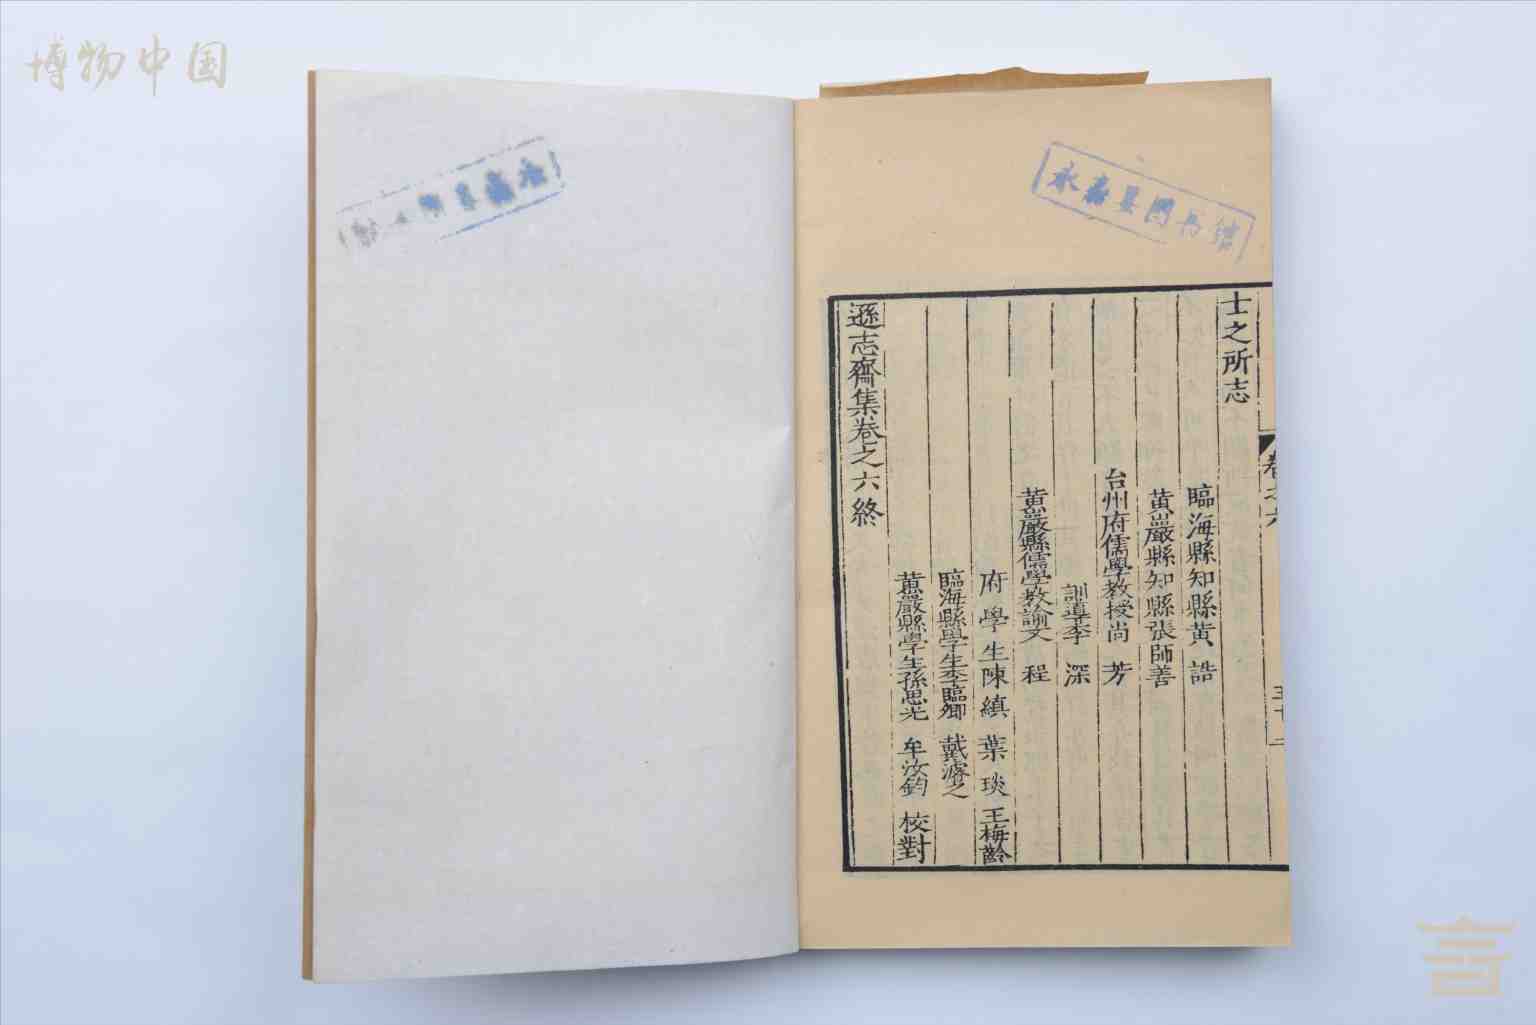 博物中国
永嘉县圖书馆
卷之六
士之所志
臨海縣知縣黄誥
黄巖縣知縣張師善
台州府儒學教授尚芳
訓導李深
黄巖縣儒學教諭文程
府學生陳縝 葉琰 王梅齡
臨海縣學生李臨卿 戴濬之
黄巖縣學生孫思光 牟汝鈞 校對
遜志齋集卷之六終